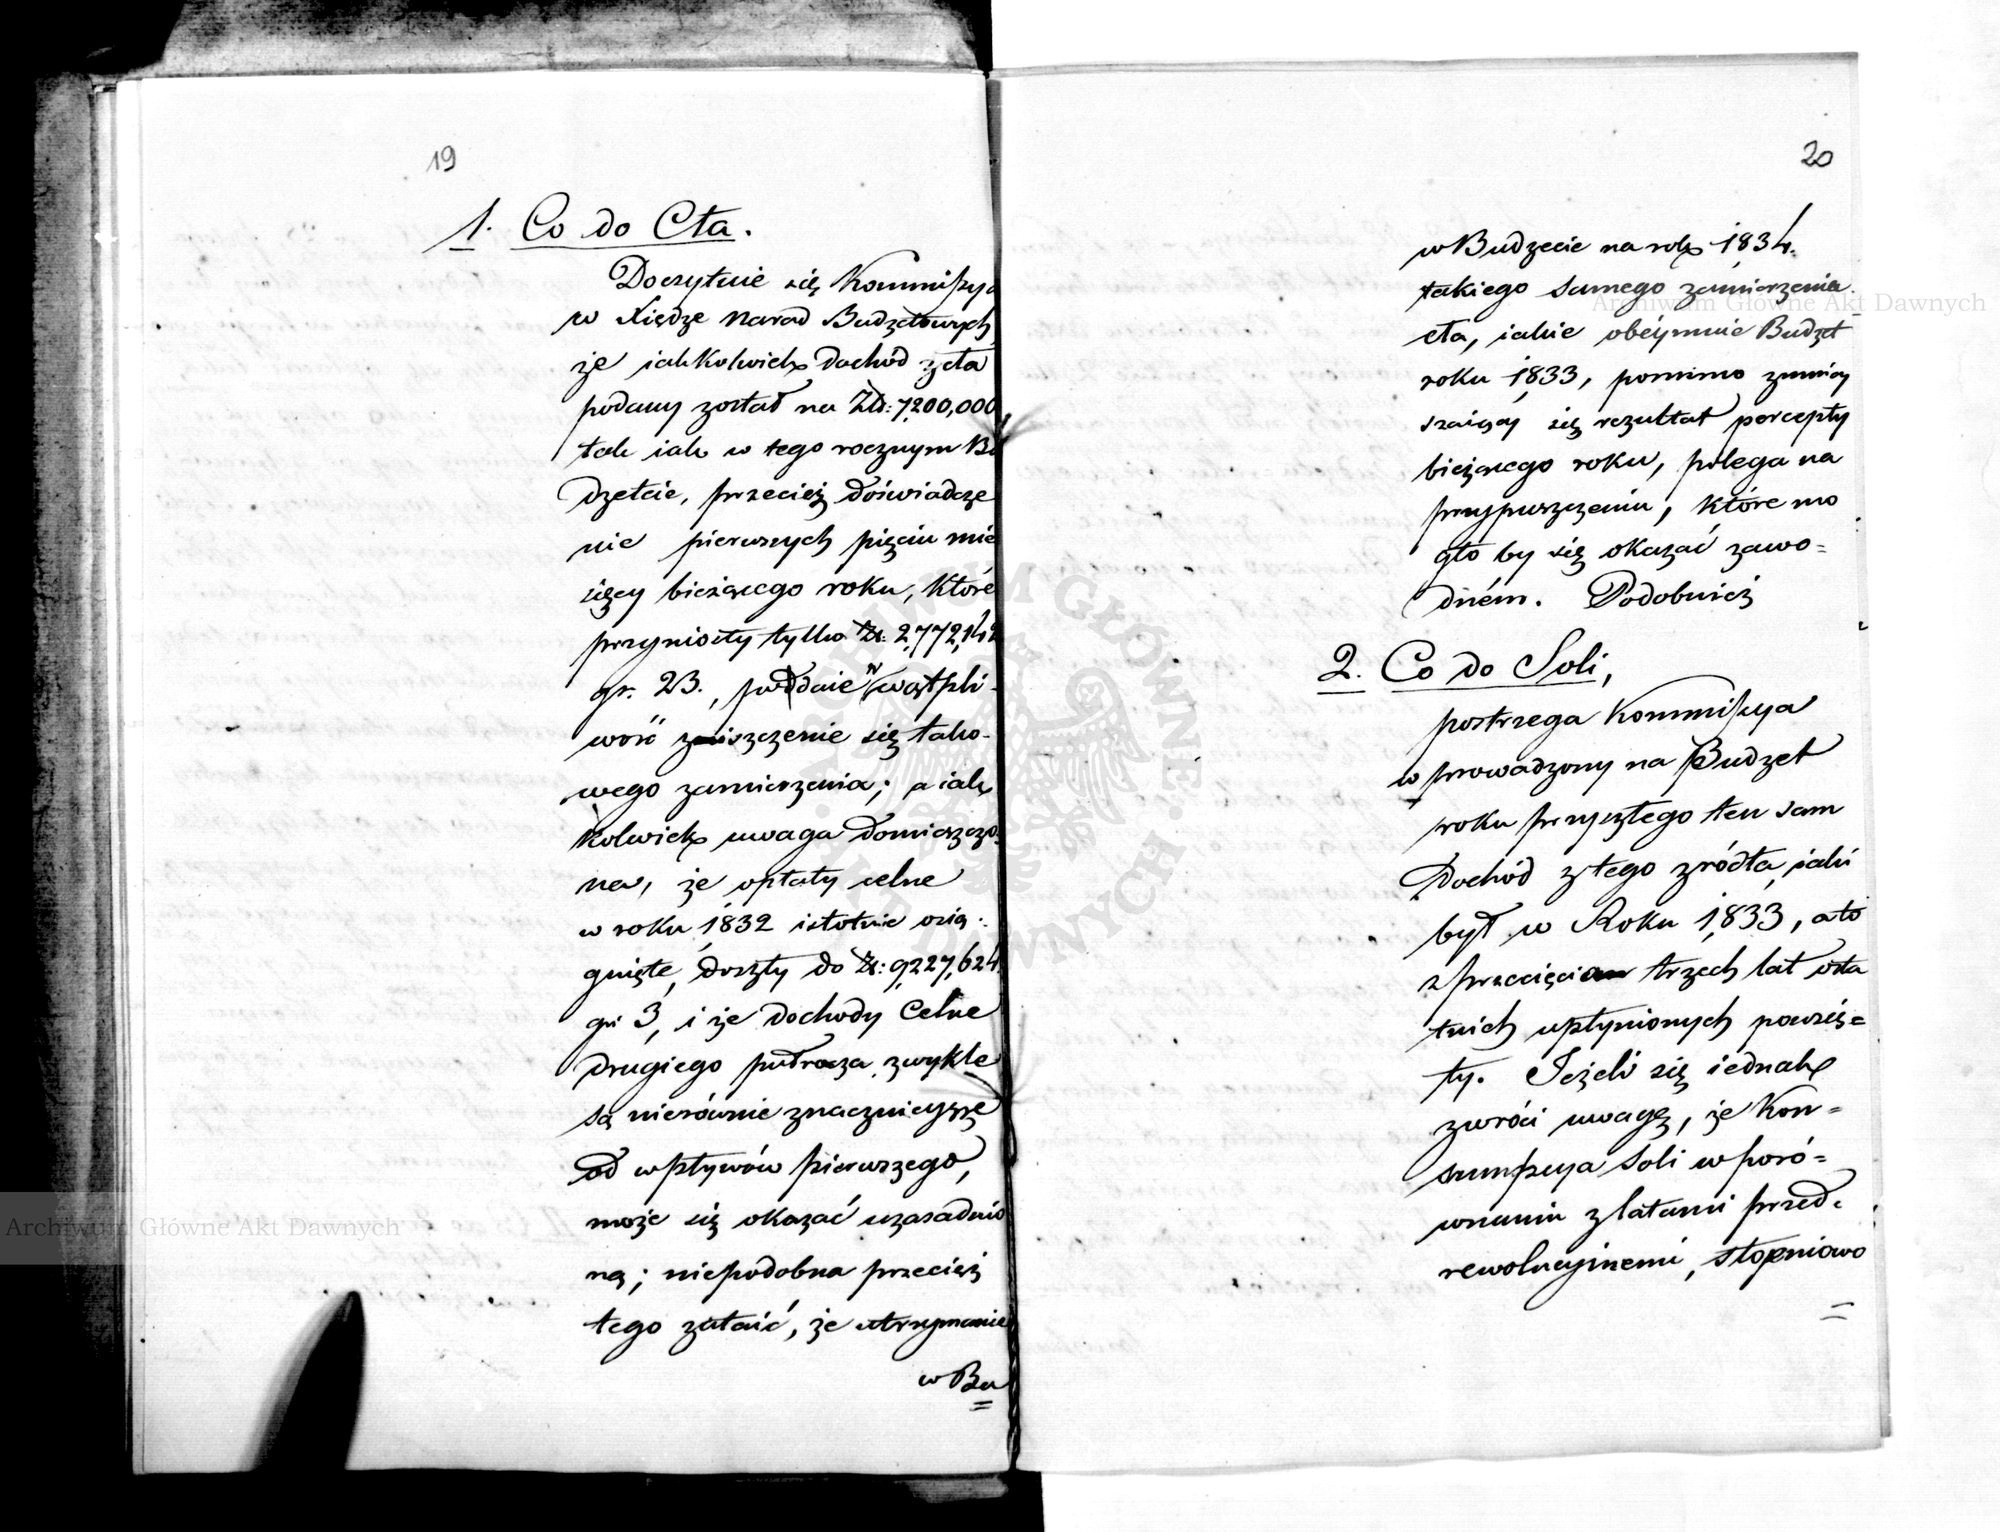 19
1. Co do Cła.
Doczytuie się Kommissya
w Xiędze Narad Budżetowych
że iakkolwiek Dochód z cła
podany został na Zło: 7,200,000
tak iak w tego rocznym Bu
dżetcie, przecież doświadcze
nie pierwszych pięciu mie
sięcy bieżącego roku, które
przyniosły tylko Zł: 2,772,142
gr. 23., poddaie w wątpli-
wość ziszczenie się tako-
wego zamierzenia; a iak
kolwiek uwaga domieszczo
na, że opłaty celne
w roku 1832 istotnie osią-
gnięte, doszły do Zł: 9,227,624
gr 3, i że dochody Celne
drugiego półrocza zwykle
są nierównie znacznieysze
od wpływów pierwszego,
może się okazać uzasadnio
ną; niepodobna przecież
tego zataić, że utrzymanie
w Bu
20
w Budżecie na rok 1834.
takiego samego zamierzenia
cła, iakie obeymuie Budżet
roku 1833, pomimo zmniey
szaiący się rezultat percepty
bieżącego roku, polega na
przypuszczeniu, które mo
gło by się okazać zawo=
dném. Podobnież
2. Co do Soli,
postrzega Kommissya
w prowadzony na Budżet
roku przyszłego ten sam
Dochód z tego źródła, iaki
był w Roku 1,833, a to
z przecięcia trzech lat osta
tnich upłynionych powzię=
ty. Jeżeli się iednak
zwróci uwagę, że Kon=
sumpcya Soli w poró=
wnaniu z latami przed-
rewolucyinemi, stopniowo
Archiwum Główne Akt Dawnych
Archiwum Główne Akt Dawnych
ARCHIWUM GŁÓWNE AKT DAWNYCH